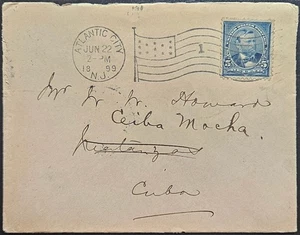 ATLANTIC CITY
JUN 22
2-PM
1899
N.J.
1
5 5
Mr W. W. Howard
Ceiba Mocha.
Matanzas
Cuba